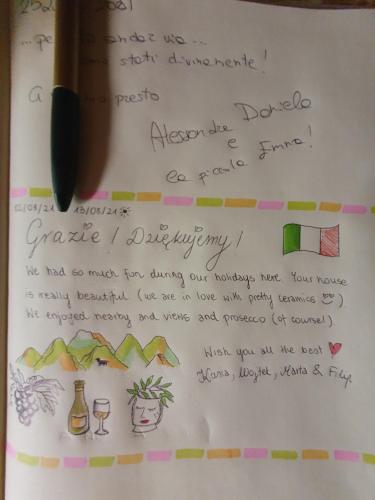 2021
...
andar via...
stati divinamente!
A
presto
Daniele
Alessandra
e
la piccola Emma!
02/08/21 13/08/21
Grazie! Dziękujemy!
We had so much fun during our holidays here. Your house
is really beautiful (we are in love with pretty ceramics)
We enjoyed nearby and views and prosecco (of course!)
Wish you all the best
Kasia, Wojtek, Marta & Filip